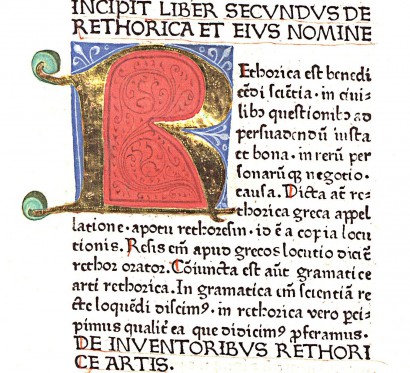 INCIPIT LIBER SECVNDVS DE
RETHORICA ET EIVS NOMINE
REthorica est benedi
cēdi sciētia · in ciui-
libꝰ questionibꝰ ad
persuadendū iusta
et bona · in rerū per
sonarūqꝫ negotio ·
causa. Dicta aūt re-
thorica greca appel
latione · apotu rethoresim · id ē a copia locu
tionis. Resis em̄ apud grecos locutio dicī
rethor orator. Cōiuncta est aūt gramatice
arti rethorica. In gramatica em̄ scientiā re
cte loquēdi discimꝰ. in rethorica vero p̄ci-
pimus qualit̄ ea que didicimꝰ p̄feramus.
DE INVENTORIBVS RETHORI
CE ARTIS.